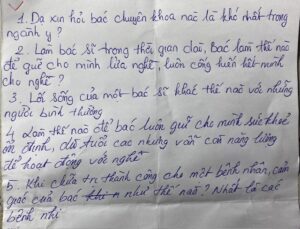 1. Dạ xin hỏi bác chuyên khoa nào là khó nhất trong
ngành y ?
2. Làm bác sĩ trong thời gian dài, Bác làm thế nào
để giữ cho mình lửa nghề, luôn cống hiến hết mình
cho nghề ?
3. Lối sống của một bác sĩ khác thế nào với những
người bình thường
4 Làm thế nào để bác luôn giữ cho mình sức khoẻ
ổn định, dù tuổi cao nhưng vẫn còn năng lượng
để hoạt động với nghề
5. Khi chữa trị thành công cho một bệnh nhân, cảm
giác của bác như thế nào ? Nhất là các
bệnh nhi